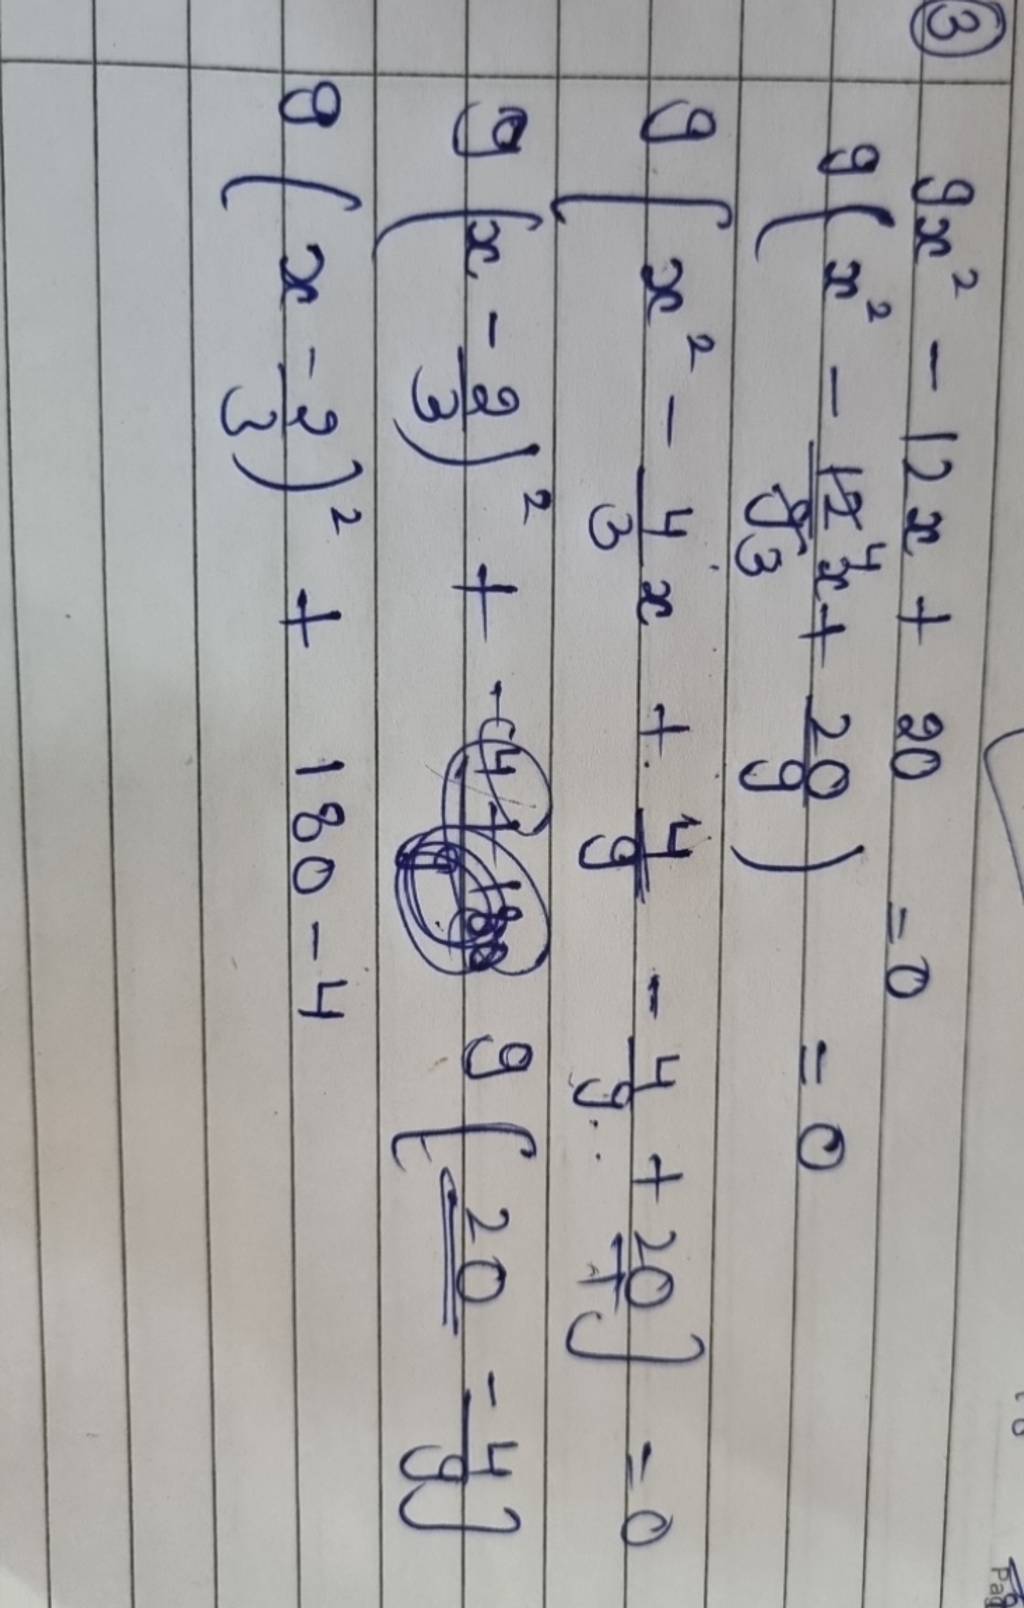 ③
9x² - 12x + 20 = 0
9(x² - 12/9 4/3 x + 20/9) = 0
9[x² - 4/3 x + 4/9 - 4/9 + 20/1] = 0
9(x - 2/3)² + 9[20 - 4/9]
9(x - 2/3)² + 180 - 4